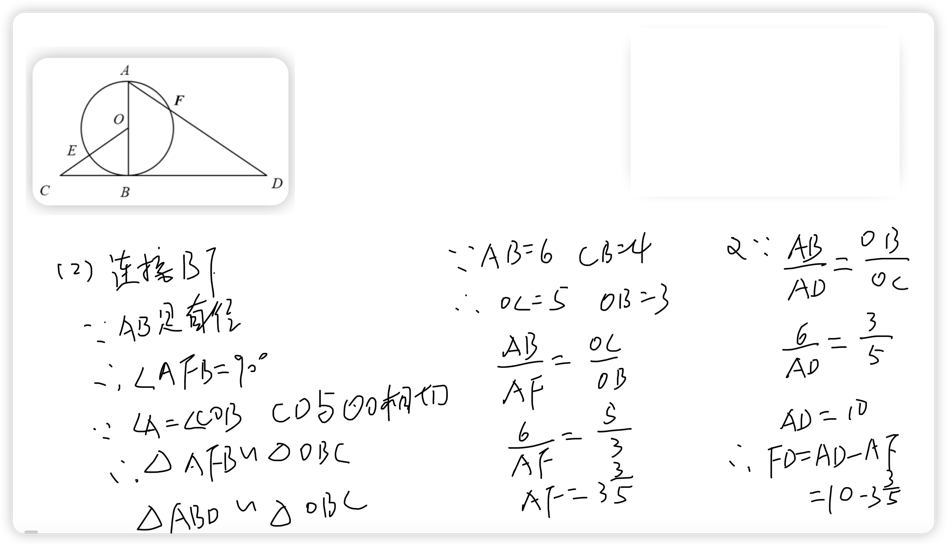 A
F
O
E
C
B
D
(2) 连接BF
∵ AB是直径
∴ ∠AFB=90°
∵ ∠A=∠COB CD与⊙O相切
∴ △AFB∽△OBC
△ABD∽△OBC
∵ AB=6 CB=4
∴ OC=5 OB=3
AB/AF = OC/OB
6/AF = 5/3
AF=3 3/5
又∵ AB/AD = OB/OC
6/AD = 3/5
AD=10
∴ FD=AD-AF
=10-3 3/5